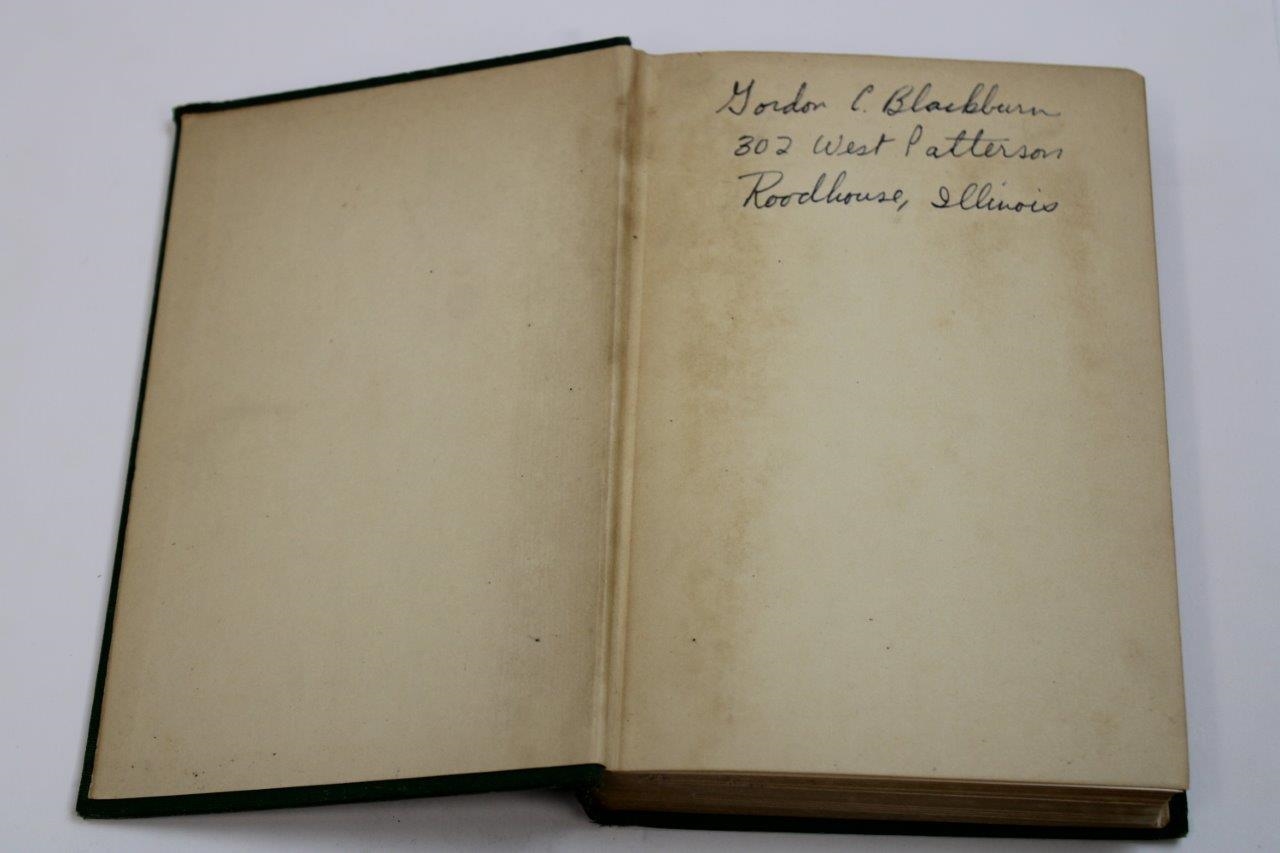 Gordon C. Blackburn
302 West Patterson
Roodhouse, Illinois